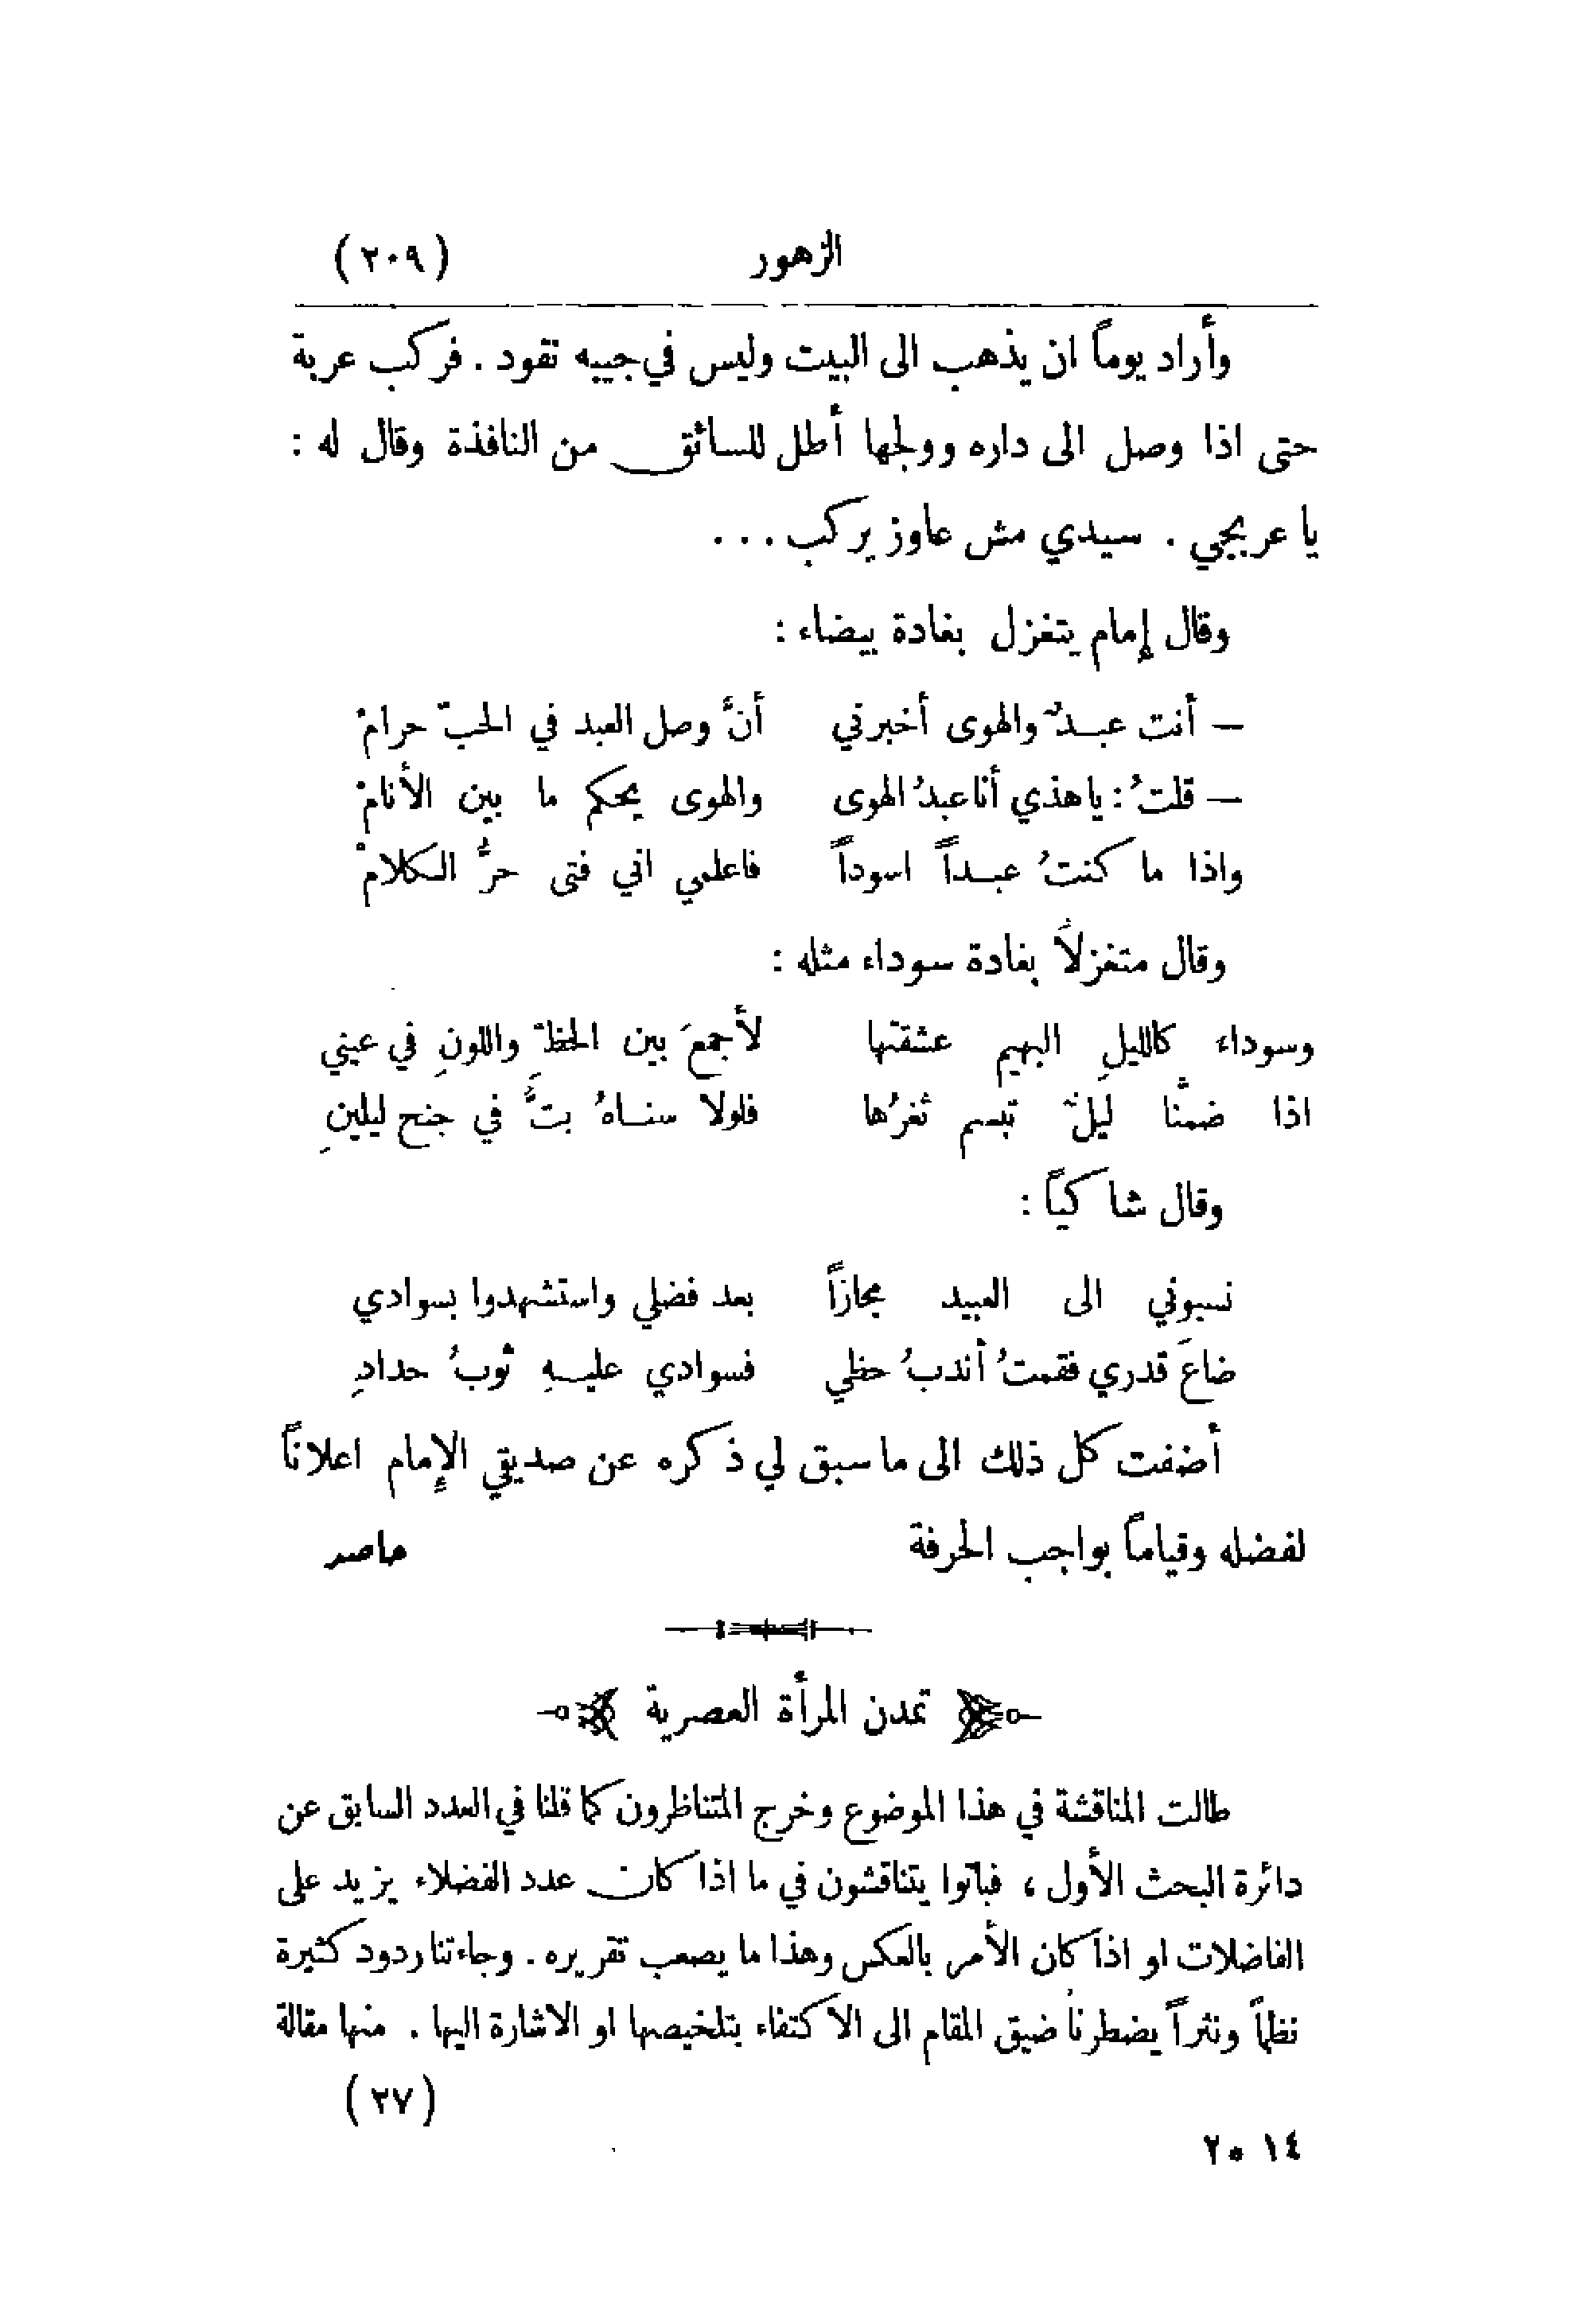 الزهور (٢٠٩)
وأراد يوماً ان يذهب الى البيت وليس في جيبه نقود . فركب عربة
حتى اذا وصل الى داره وولجها أطل للسائق من النافذة وقال له :
يا عربجي . سيدي مش عاوز يركب . . .
وقال إمام يتغزل بغادة بيضاء :
— أنت عبدٌ والهوى أخبرني أنَّ وصل العبد في الحبّ حرامْ
— قلتُ : يا هذي أنا عبدُ الهوى والهوى يحكم ما بين الأنامْ
واذا ما كنتُ عبداً اسوداً فاعلمي اني فتى حرُّ الكلامْ
وقال متغزلاً بغادة سوداء مثله :
وسوداء كالليلِ البهيم عشقتها لأجمعَ بين الحظّ واللونِ في عيني
اذا ضمَّنا ليلٌ تبسم ثغرُها فلولا سناهُ بتُّ في جنح ليلينِ
وقال شاكياً :
نسبوني الى العبيد مجازاً بعد فضلي واستشهدوا بسوادي
ضاعَ قدري فقمتُ أندبُ حظي فسوادي عليهِ ثوبُ حدادِ
أضفت كل ذلك الى ما سبق لي ذكره عن صديقي الإمام اعلاناً
لفضله وقياماً بواجب الحرفة حاصد
تمدن المرأة العصرية
طالت المناقشة في هذا الموضوع وخرج المتناظرون كما قلنا في العدد السابق عن
دائرة البحث الأول ، فباتوا يتناقشون في ما اذا كان عدد الفضلاء يزيد على
الفاضلات او اذا كان الأمر بالعكس وهذا ما يصعب تقريره . وجاءتنا ردود كثيرة
نظماً ونثراً يضطرنا ضيق المقام الى الاكتفاء بتلخيصها او الاشارة اليها . منها مقالة
(٢٧)
١٤ * ٢